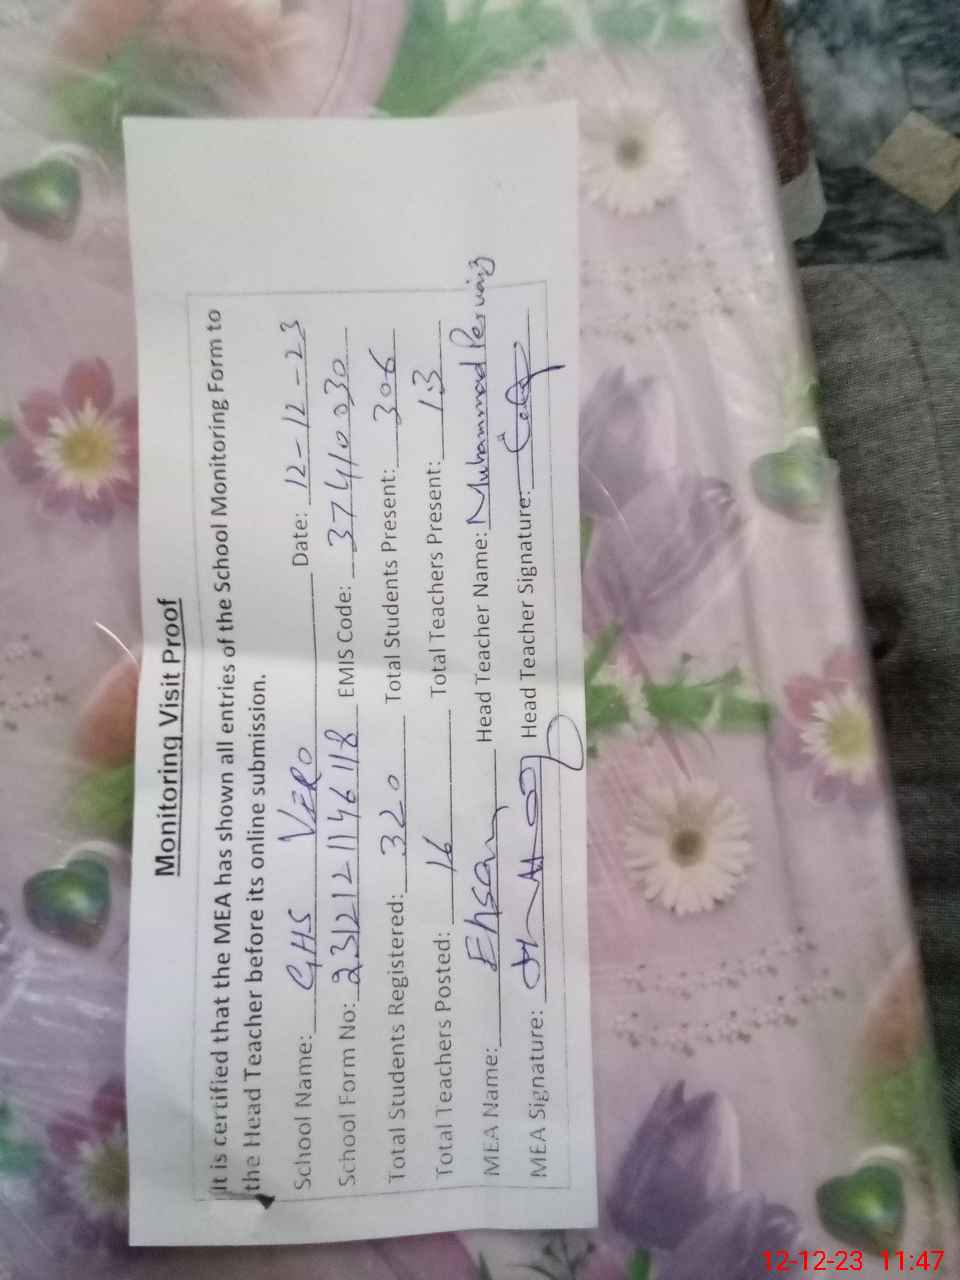 Monitoring Visit Proof
It is certified that the MEA has shown all entries of the School Monitoring Form to
the Head Teacher before its online submission.
School Name: GHS VERO Date: 12-12-23
School Form No: 2312121146118 EMIS Code: 37410030
Total Students Registered: 320 Total Students Present: 306
Total Teachers Posted: 16 Total Teachers Present: 13
MEA Name: Ehsan Head Teacher Name: Muhammad Pervaiz
MEA Signature: Head Teacher Signature:
12-12-23 11:47